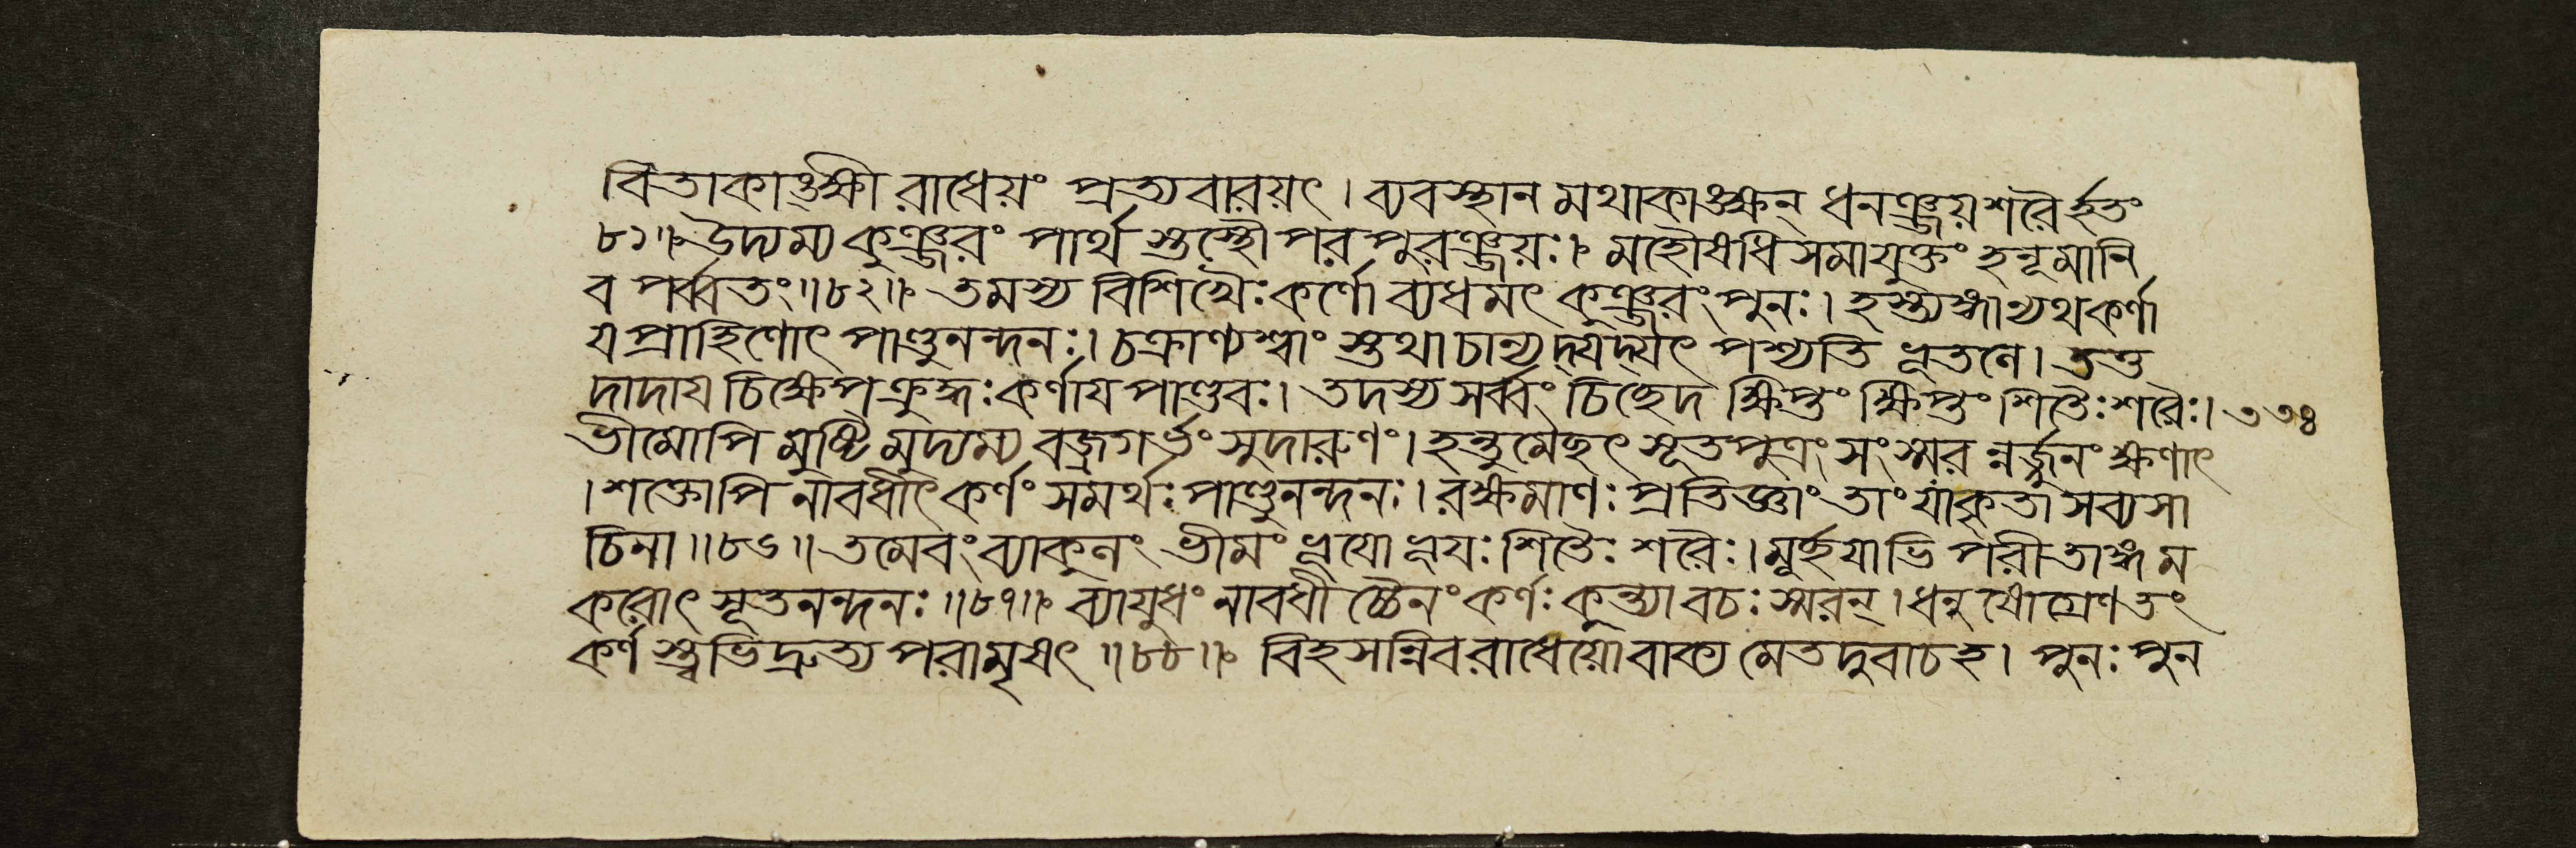 বিতাকাঙ্ক্ষী রাধেয়ং প্রত্যবারয়ৎ । ব্যবস্থান মথাকাঙ্ক্ষন্ ধনঞ্জয়শরৈর্হতং
৮১॥ উদ্যম্য কুঞ্জরং পার্থ স্তস্থৌ পর পুরঞ্জয়ঃ । মহৌষধি সমাযুক্তং হনূমানি
ব পর্ব্বতং॥৮২॥ তমস্য বিশিখৈঃ কর্ণো ব্যধমৎ কুঞ্জরং পুনঃ । হস্ত্যঙ্গান্যথ কর্ণা
য প্রাহিণোৎ পাণ্ডুনন্দনঃ । চক্রাণ্যশ্বাং স্তথা চান্যদ্যদ্যৎ পশ্যতি ভূতলে । তত্ত
দাদায চিক্ষেপ ক্রুদ্ধঃ কর্ণায পাণ্ডবঃ । তদস্য সর্ব্বং চিচ্ছেদ ক্ষিপ্তং ক্ষিপ্তং শিতৈঃ শরৈঃ । ৩৩৪
ভীমোপি মুষ্টি মুদ্যম্য বজ্রগর্ভং সুদারুণং । হন্তুমৈছৎ সূতপুত্রং সংস্মর ন্নর্জ্জুনং ক্ষণাৎ
। শক্তোপি নাবধীৎ কর্ণং সমর্থঃ পাণ্ডুনন্দনঃ । রক্ষমাণঃ প্রতিজ্ঞাং তাং যাকৃতা সব্যসা
চিনা ॥৮৬॥ তমেবং ব্যাকুলং ভীমং ভূযো ভূযঃ শিতৈঃ শরৈঃ । মূর্ছযাভি পরীতাঙ্গ ম
করোৎ সূতনন্দনঃ ॥৮৭॥ ব্যাযুধং নাবধীচ্চৈনং কর্ণঃ কুন্ত্যা বচঃ স্মরন্ । ধনুষোগ্রেণ তং
কর্ণ স্ত্বভিদ্রুত্য পরামৃষৎ ॥৮৮॥ বিহসন্নিব রাধেয়ো বাক্য মেতদুবাচ হ । পুনঃ পুন